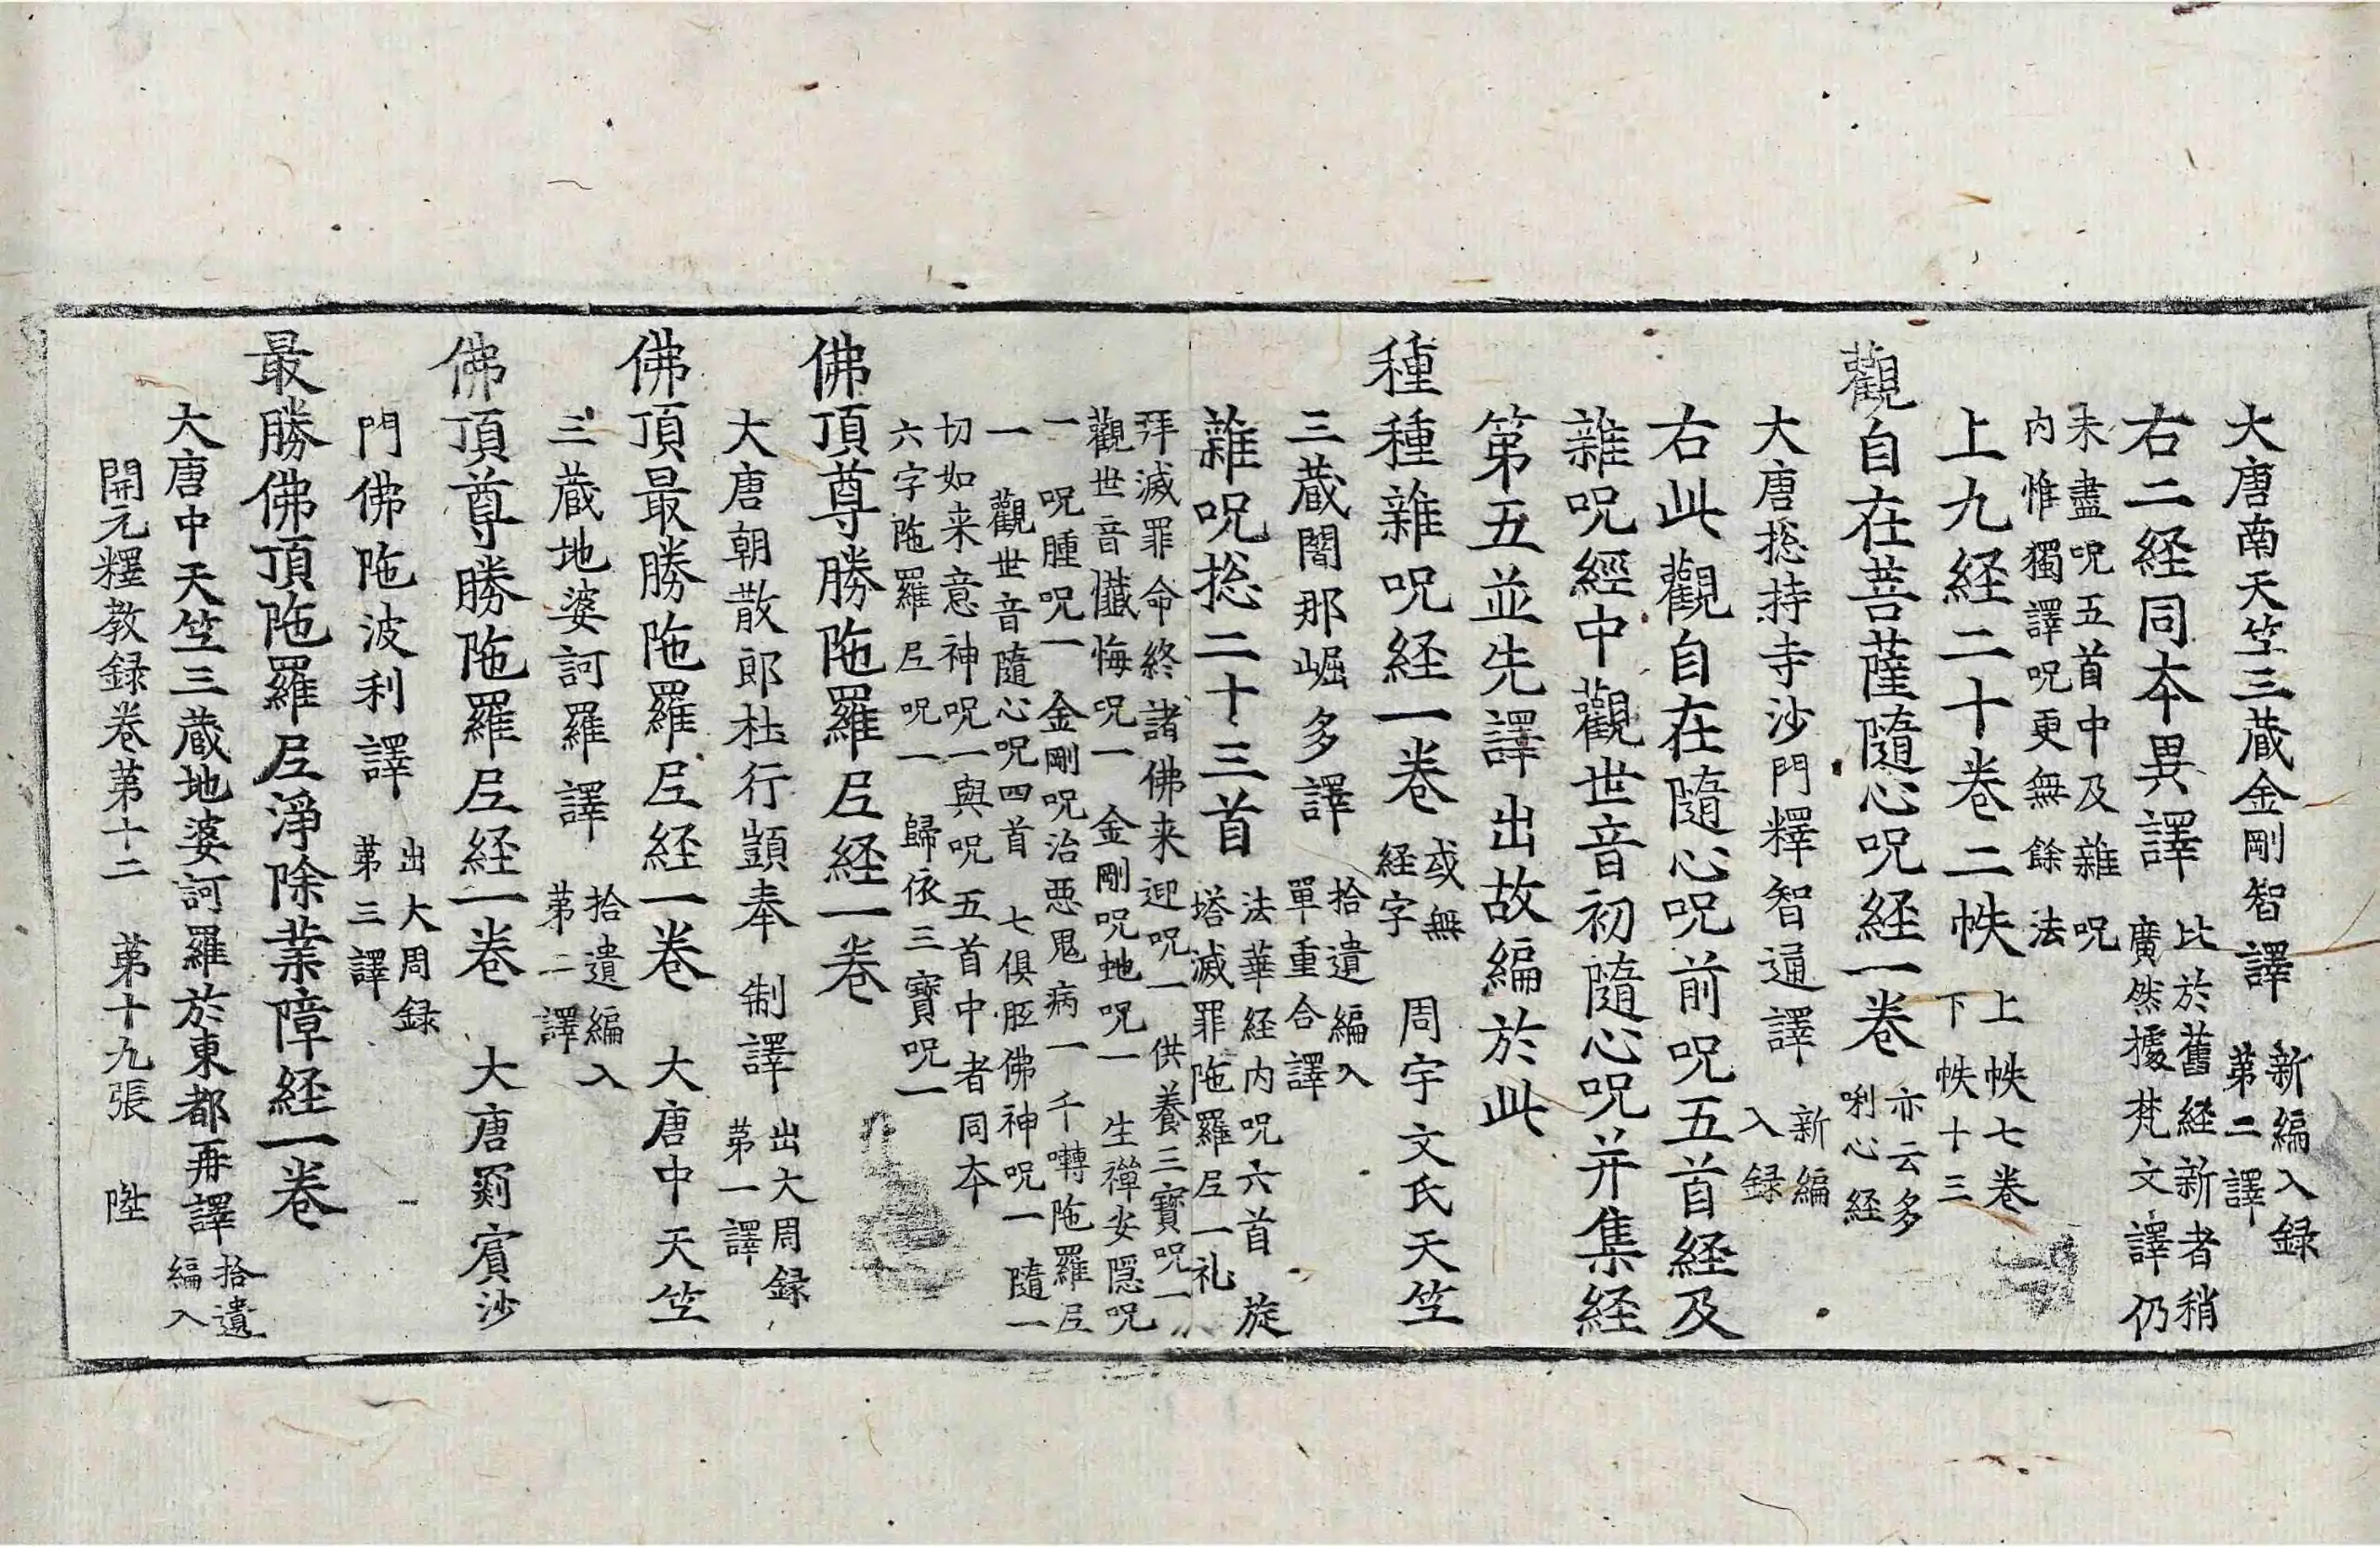 大唐南天竺三蔵金剛智譯 新編入録
第二譯
右二経同夲異譯 比於舊経新者稍
廣然據梵文譯仍
未盡呪五首中及雜呪
内惟獨譯呪更無餘法
上九経二十卷二帙 上帙七卷
下帙十三
觀自在菩薩隨心呪経一卷 亦云多
唎心経
大唐揔持寺沙門釋智通譯 新編
入録
右此觀自在隨心呪前呪五首経及
雜呪經中觀世音初隨心呪并集経
第五並先譯出故編於此
種種雜呪経一卷 或無
経字 周宇文氏天竺
三蔵闍那崛多譯 拾遺編入
單重合譯
雜呪揔二十三首 法華経内呪六首 旋
塔滅罪陁羅尼一礼
拜滅罪命終諸佛来迎呪一 供養三寶呪一
觀世音懺悔呪一 金剛呪虵呪一 生禪安隱呪
一 呪腫呪一 金剛呪治惡鬼病一 千囀陁羅尼
一 觀世音隨心呪四首 七俱胝佛神呪一 隨一
切如来意神呪一與呪五首中者同夲
六字陁羅尼呪一 歸依三寶呪一
佛頂尊勝陁羅尼経一卷
大唐朝散郎杜行顗奉 制譯 出大周録
第一譯
佛頂最勝陁羅尼経一卷 大唐中天竺
三蔵地婆訶羅譯 拾遺編入
第二譯
佛頂尊勝陁羅尼経一卷 大唐罽賓沙
門佛陁波利譯 出大周録
第三譯
最勝佛頂陁羅尼淨除業障経一卷
大唐中天竺三蔵地婆訶羅於東都再譯 拾遺
編入
開元釋教録卷第十二 第十九張 陞